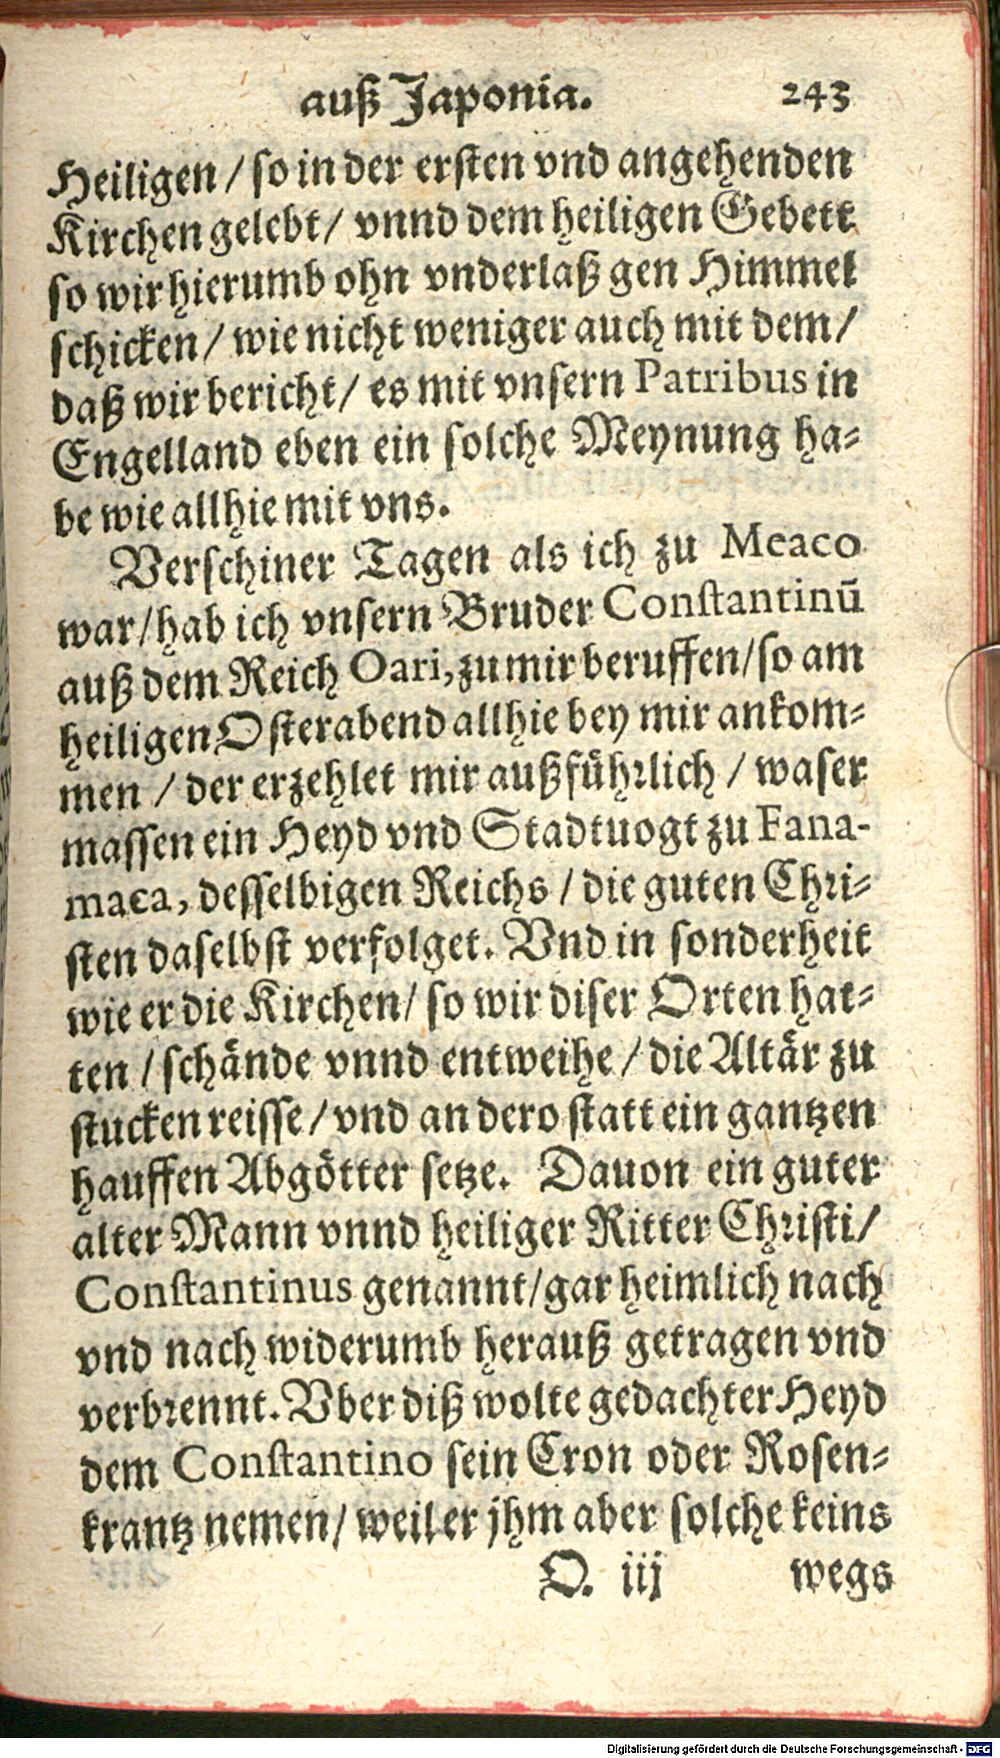 auß Japonia. 243
Heiligen / so in der ersten vnd angehenden
Kirchen gelebt / vnnd dem heiligen Gebett
so wir hierumb ohn vnderlaß gen Himmel
schicken / wie nicht weniger auch mit dem /
daß wir bericht / es mit vnsern Patribus in
Engelland eben ein solche Meynung ha⸗
be wie allhie mit vns.
Verschiner Tagen als ich zu Meaco
war / hab ich vnsern Bruder Constantinū
auß dem Reich Oari, zu mir beruffen / so am
heiligen Osterabend allhie bey mir ankom⸗
men / der erzehlet mir außführlich / waser
massen ein Heyd vnd Stadtuogt zu Fana-
maca, desselbigen Reichs / die guten Chri⸗
sten daselbst verfolget. Vnd in sonderheit
wie er die Kirchen / so wir diser Orten hat⸗
ten / schände vnnd entweihe / die Altär zu
stucken reisse / vnd an dero statt ein gantzen
hauffen Abgötter setze. Dauon ein guter
alter Mann vnnd heiliger Ritter Christi /
Constantinus genannt / gar heimlich nach
vnd nach widerumb herauß getragen vnd
verbrennt. Vber diß wolte gedachter Heyd
dem Constantino sein Cron oder Rosen⸗
krantz nemen / weil er jhm aber solche keins
O. iij wegs
Digitalisierung gefördert durch die Deutsche Forschungsgemeinschaft - DFG